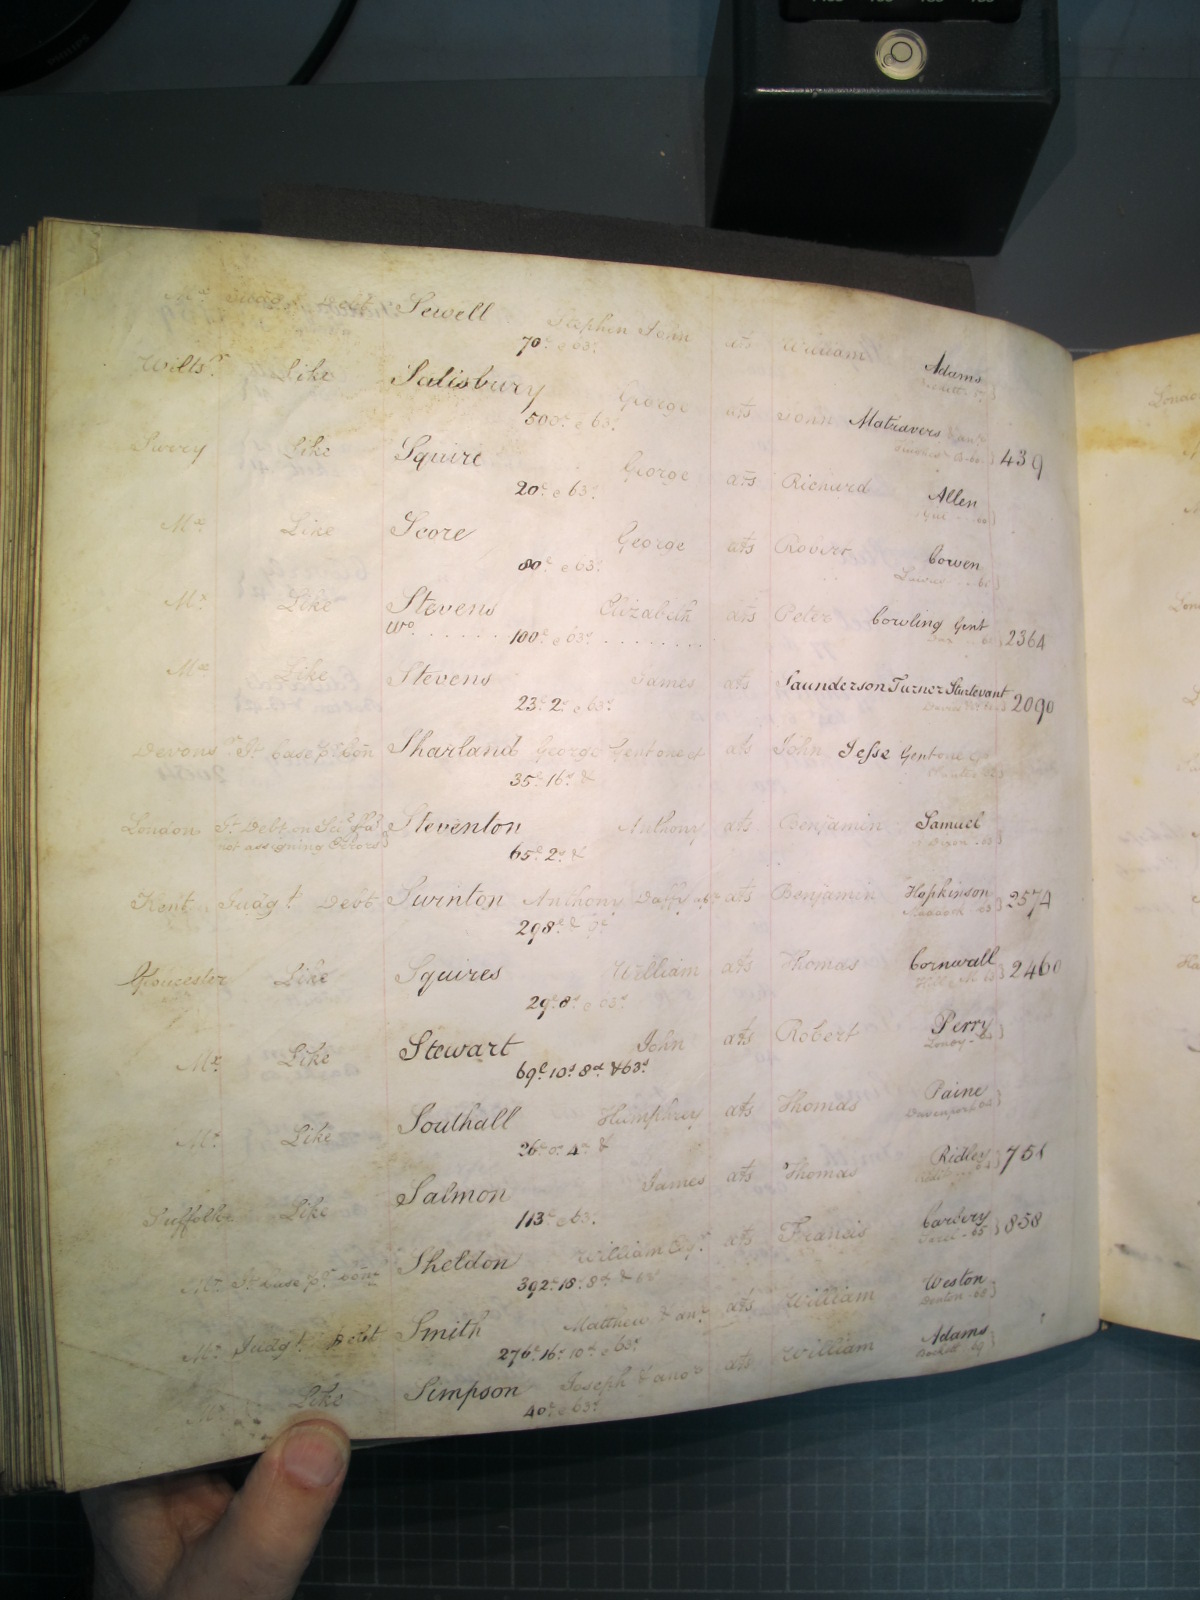 Mx Judgt Debt Sewell Stephen John ats William Adams
70£ & 63s
Wilts Like Salisbury George ats John Matravers Gent
500£ & 63s 439
Surrey Like Squire George ats Richard Allen
20£ & 63s
Mx Like Score George ats Robert Cowen
80£ & 63s
Mx Like Stevens Elizabeth ats Peter Cowling Gent
Wo. . . . . . 100£ & 63s . . . . . . . 2364
Mx Like Stevens James ats Saunderson Turner Sturtevant
23£ 2s & 63s 2090
Devons Sharland George Gent one &c ats John Jesse Gent one &c
35£ 16s &
London Jt Debt on Sci: fa: Steventon Anthony ats Benjamin Samuel
not assigning Errors 65£ 2s &
Kent Judgt Debt Swinton Anthony Daffy ats Benjamin Hopkinson 2574
298£ & 9s
Gloucester Like Squires William ats Thomas Cornwall 2460
29£ 8s & 63s
Mx Like Stewart John ats Robert Perry
69£ 10s 8d & 63s
Mx Like Southall Humphrey ats Thomas Paine
Davenport
26£ 0s 4d &
Suffolk Like Salmon James ats Thomas Ridley 751
113£ & 63s
Mx Sheldon William Esqr ats Francis Carbery 858
392£ 18s 8d &
Mx Judgt Debt Smith Matthew & anr ats William Weston
276£ 16s 10d & 63s
Mx Like Simpson Joseph & anor ats William Adams
40£ & 63s